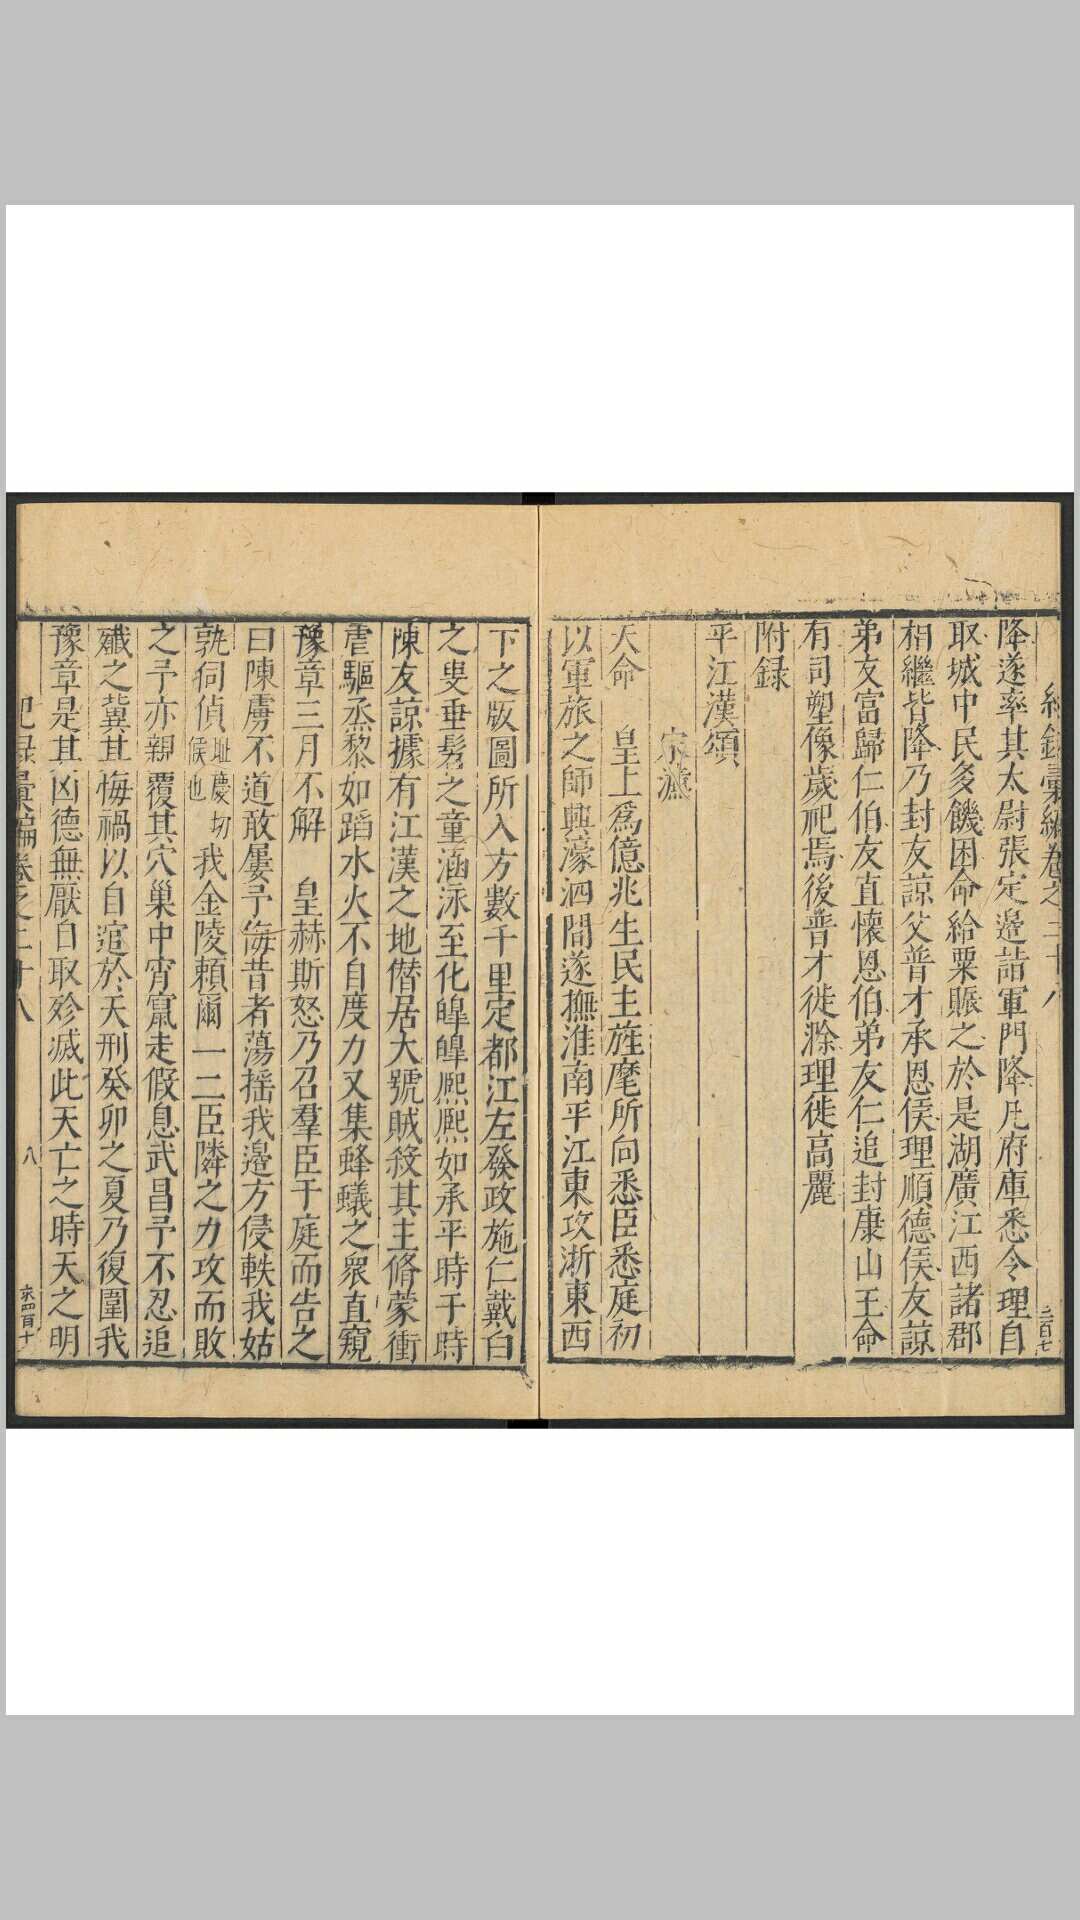 紀錄彙編卷之二十八
二百七
降遂率其太尉張定邉詣軍門降凡府庫悉令理自
取城中民多饑困命給粟賑之於是湖廣江西諸郡
相繼皆降乃封友諒父普才承恩侯理順德侯友諒
弟友富歸仁伯友直懷恩伯弟友仁追封康山王命
有司塑像歲祀焉後普才徙滁理徙高麗
附録
平江漢頌
宋濂
天命　皇上爲億兆生民主旌麾所向悉臣悉庭初
以軍旅之師興濠泗間遂撫淮南平江東攻浙東西
下之版圖所入方數千里定都江左發政施仁戴白
之叟垂髫之童涵泳至化皥皥熈熈如承平時于時
陳友諒據有江漢之地僭居大號賊殺其主脩蒙衝
虐驅烝黎如蹈水火不自度力又集蜂蟻之衆直窺
豫章三月不解　皇赫斯怒乃召羣臣于庭而告之
曰陳虜不道敢屢予侮昔者蕩揺我邉方侵軼我姑
孰伺偵恥慶切候也我金陵頼爾一二臣隣之力攻而敗
之予亦親覆其穴巢中宵竄走假息武昌予不忍追
殲之冀其悔禍以自逭於天刑癸卯之夏乃復圍我
豫章是其凶德無厭自取殄滅此天亡之時天之明
紀録彙編卷之二十八
八
宋四百十